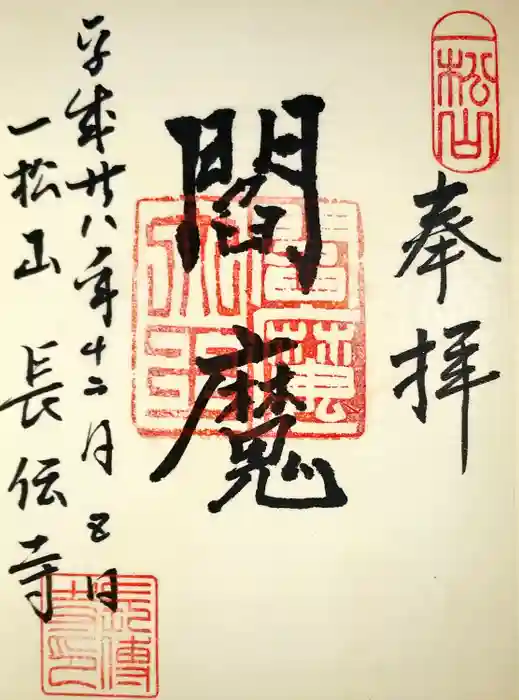 一松山
奉拝
閻魔
平成廿八年十二月五日
一松山 長伝寺